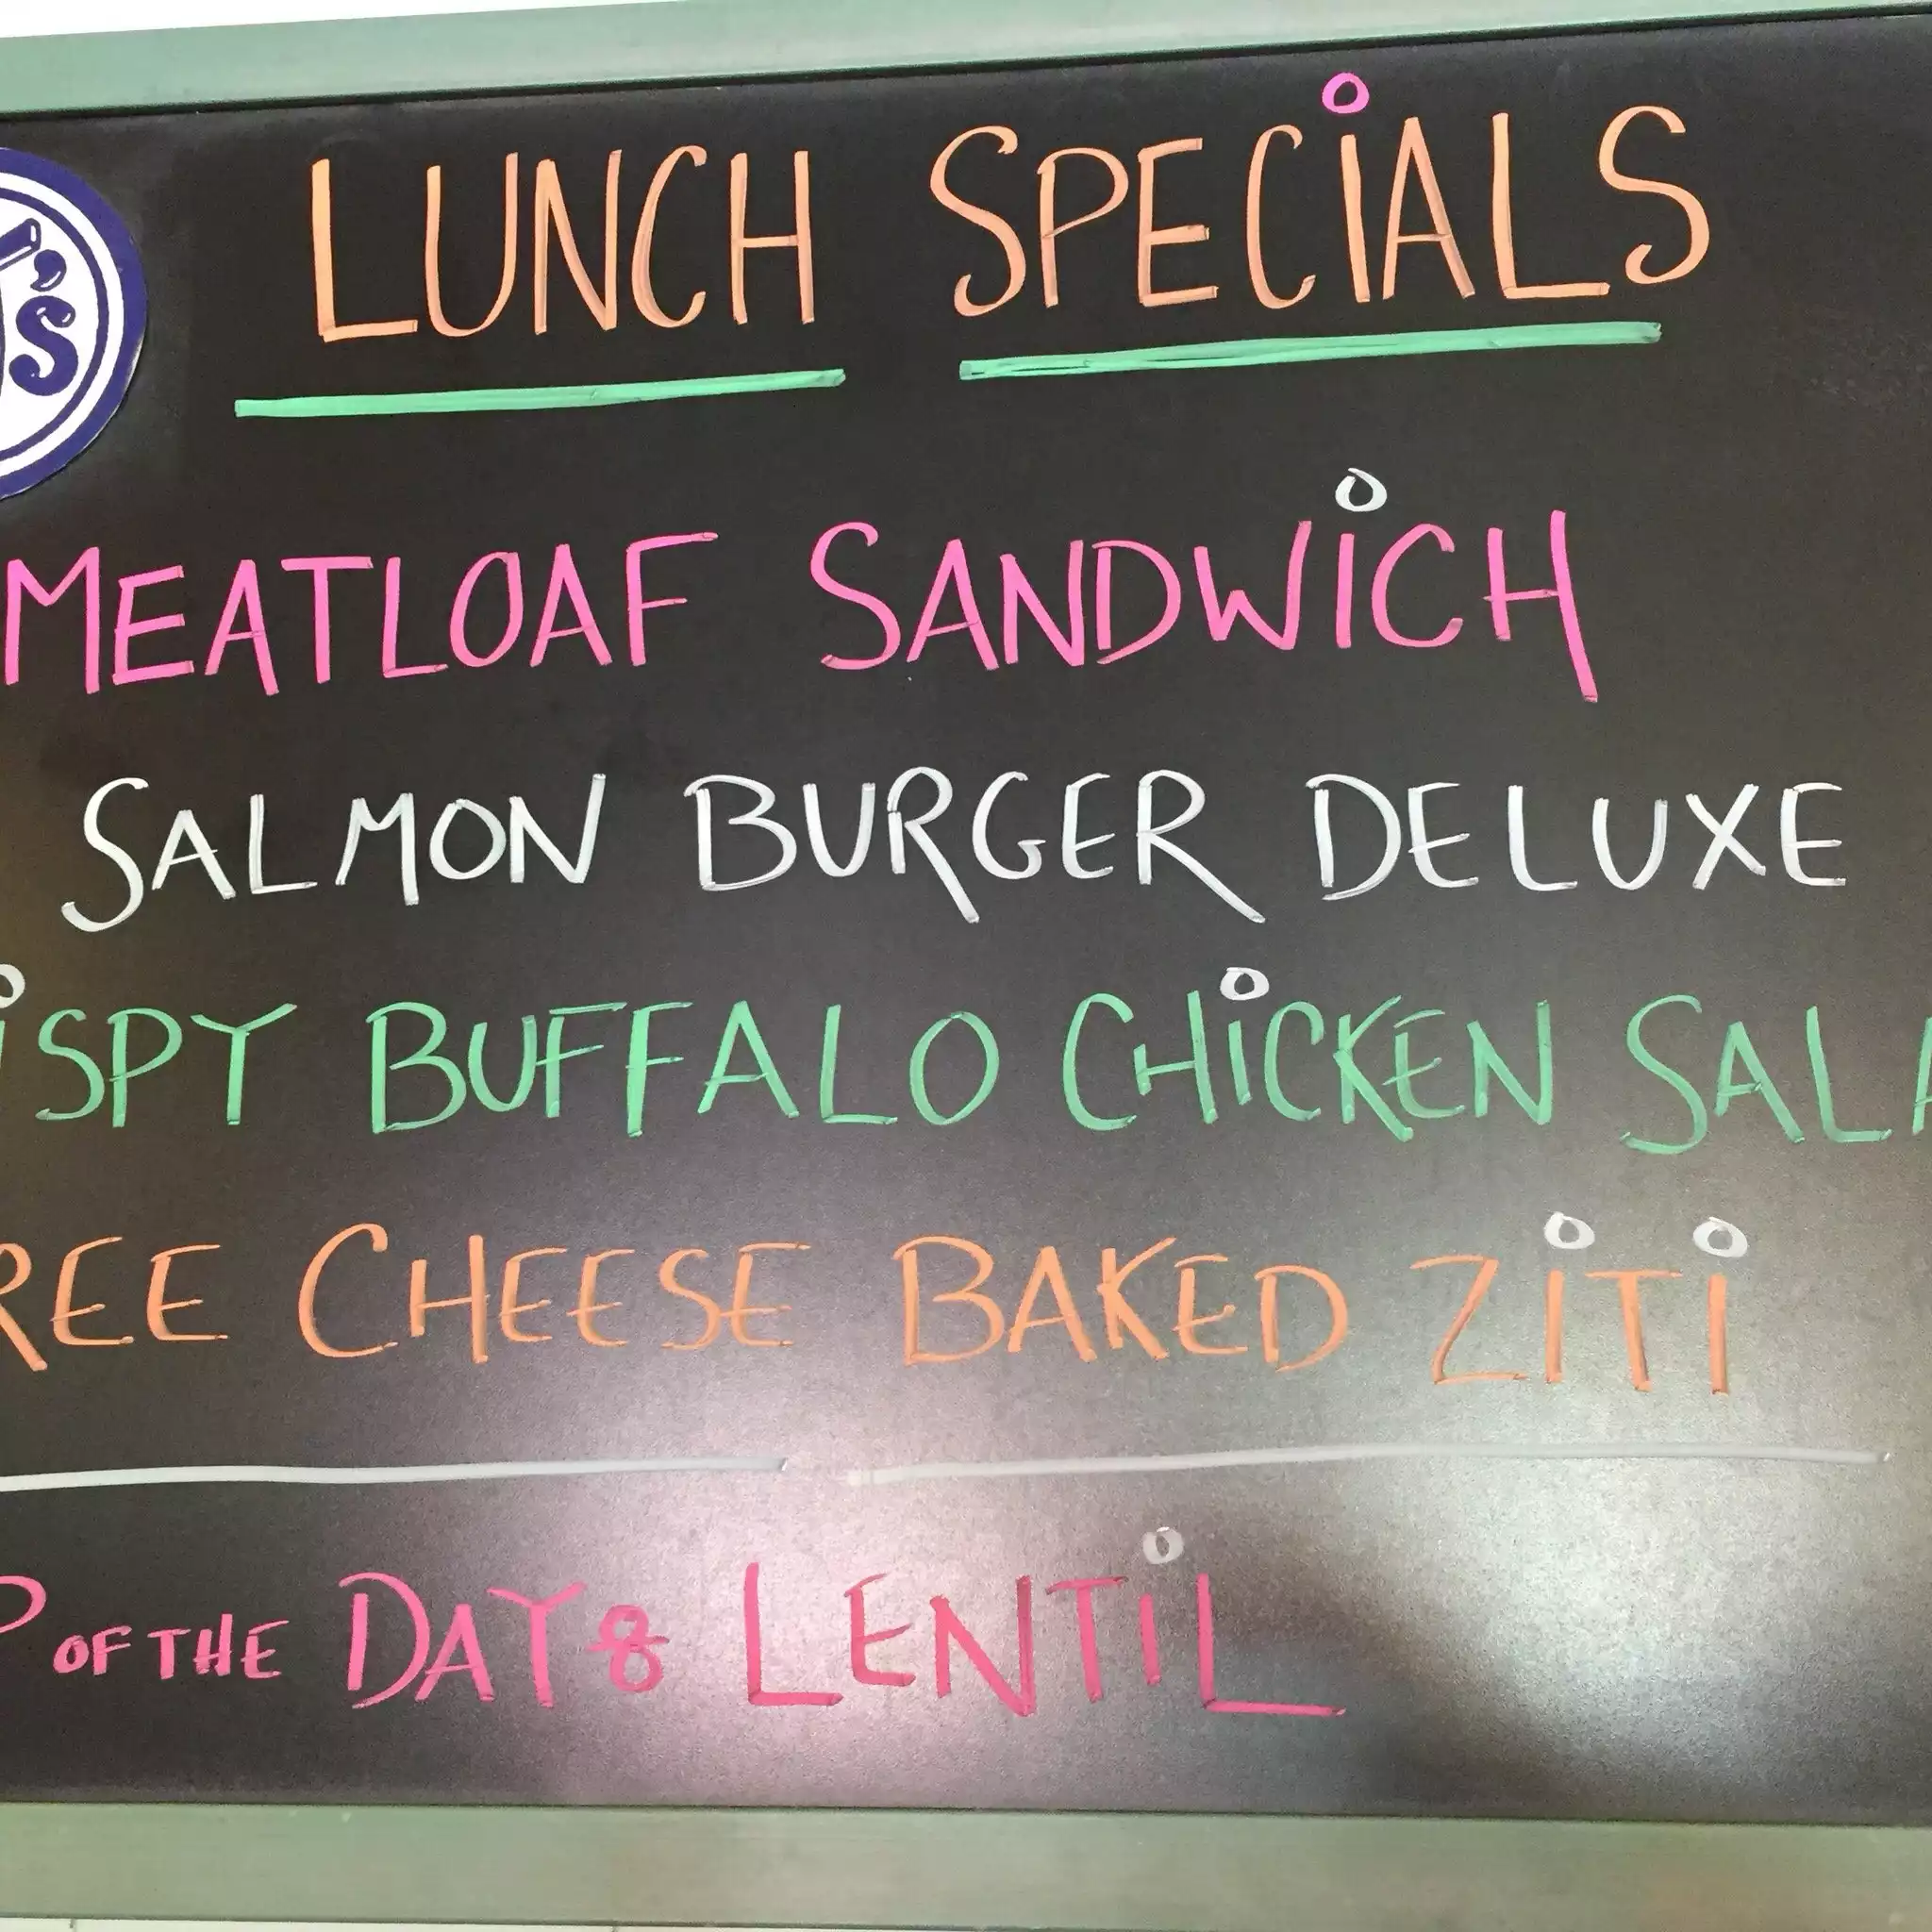 LUNCH SPECiALS
's
MEATLOAF SANDWiCH
SALMON BURGER DELUXE
iSPY BUFFALO CHiCKEN SALA
REE CHEESE BAKED ZiTi
P OF THE DAY: LENTiL